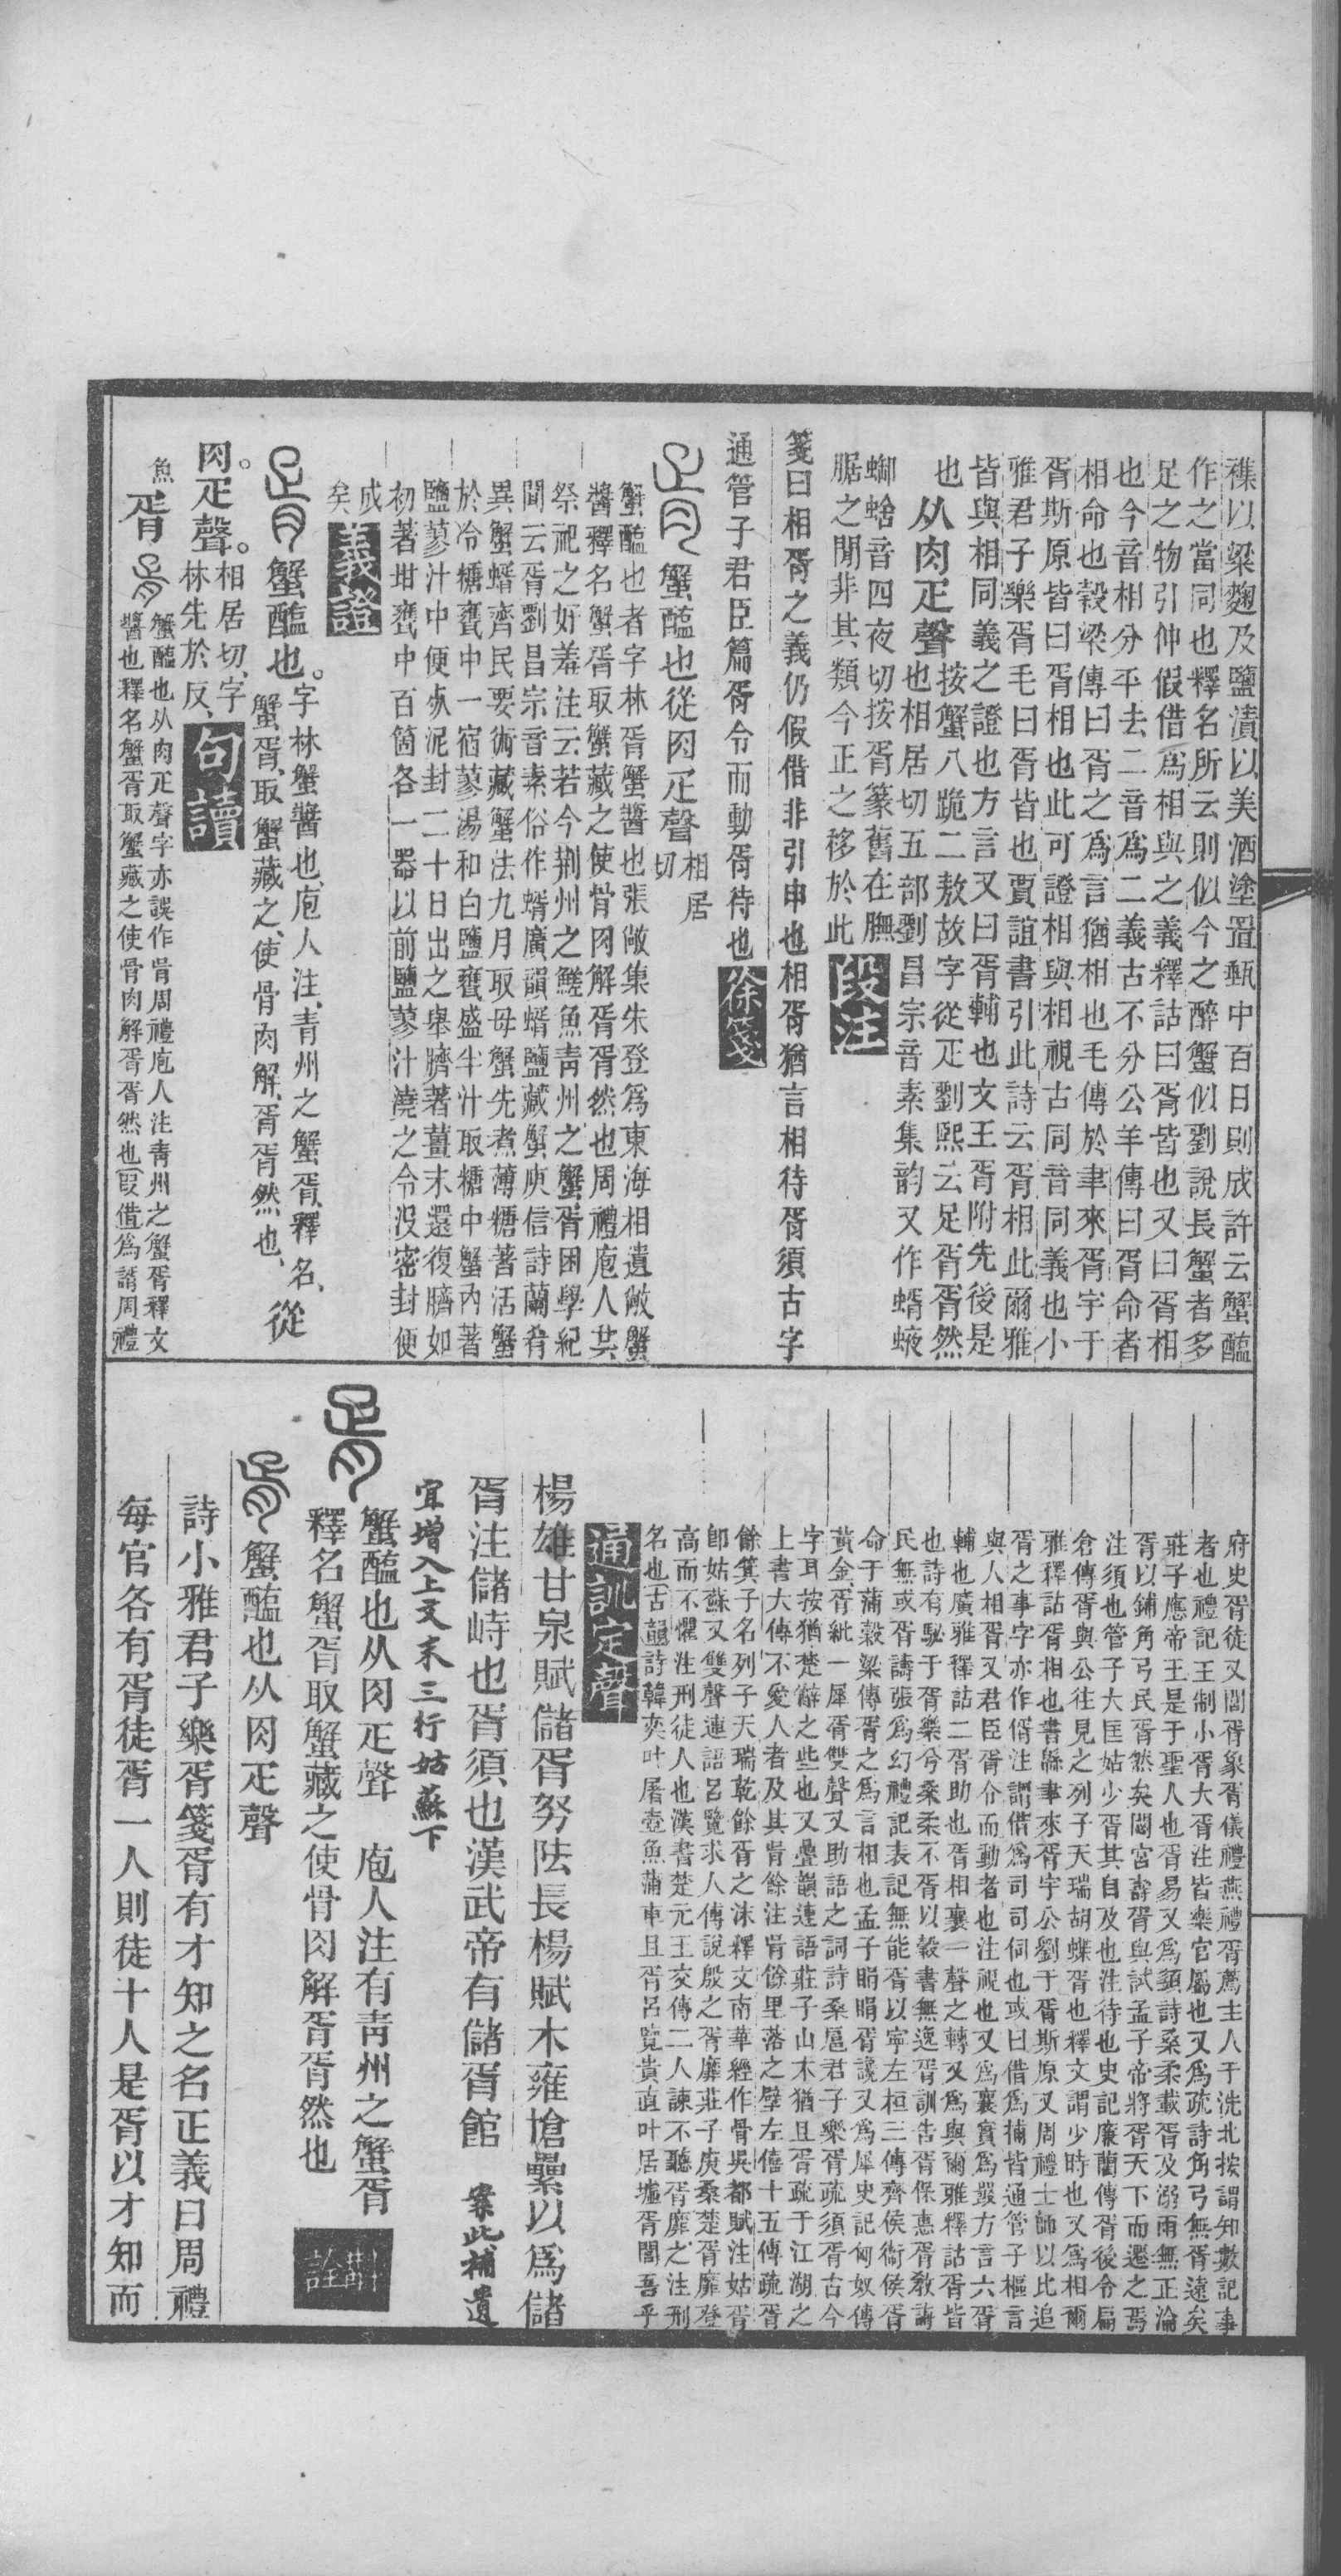 襍以粱麴及鹽漬以美酒塗置甀中百日則成許云蟹醢
作之當同也釋名所云則似今之醉蟹似劉說長蟹者多
足之物引伸假借爲相與之義釋詁曰胥皆也又曰胥相
也今音相分平去二音爲二義古不分公羊傳曰胥命者
相命也穀梁傳曰胥之爲言猶相也毛傳於聿來胥宇于
胥斯原皆曰胥相也此可證相與相視古同音同義也小
雅君子樂胥毛曰胥皆也賈誼書引此詩云胥相此爾雅
皆與相同義之證也方言又曰胥輔也文王胥附先後是
也从肉疋聲按蟹八跪二敖故字從疋劉熙云足胥胥然
也相居切五部劉昌宗音素集韵又作蝑蝷
蝍蛒音四夜切按胥篆舊在膴
腒之閒非其類今正之移於此段注
箋曰相胥之義仍假借非引申也相胥猶言相待胥須古字
通管子君臣篇胥令而動胥待也徐箋
蟹醢也從肉疋聲相居
切
蟹醢也者字林胥蟹醬也張敞集朱登爲東海相遺敞蟹
醬釋名蟹胥取蟹藏之使骨肉解胥胥然也周禮庖人共
祭祀之好羞注云若今荆州之䱹魚青州之蟹胥困學紀
聞云胥劉昌宗音素俗作蝑廣韻蝑鹽藏蟹庾信詩蘭肴
異蟹蝑齊民要術藏蟹法九月取母蟹先煮薄糖著活蟹
於冷糖甕中一宿蓼湯和白鹽甕盛半汁取糖中蟹內著
鹽蓼汁中便死泥封二十日出之舉臍著薑末還復臍如
初著坩甕中百箇各一器以前鹽蓼汁澆之令没密封便
成
矣義證
蟹醢也。字林蟹醬也、庖人注、青州之蟹胥、釋名、
蟹胥、取蟹藏之、使骨肉解、胥胥然也、從
肉疋聲。相居切、字
林先於反、句讀
魚胥蟹醢也从肉疋聲字亦誤作肯周禮庖人注青州之蟹胥釋文
醬也釋名蟹胥取蟹藏之使骨肉解胥胥然也叚借爲諝周禮
府史胥徒又閭胥象胥儀禮燕禮胥薦主人于洗北按謂知數記事
者也禮記王制小胥大胥注皆樂官屬也又爲疏詩角弓無胥遠矣
莊子應帝王是于聖人也胥易又爲頾詩桑柔載胥及溺雨無正淪
胥以鋪角弓民胥然矣閟宮壽胥與試孟子帝將胥天下而遷之焉
注須也管子大匡姑少胥其自及也注待也史記廉藺傳胥後令扁
倉傳胥與公往見之列子天瑞胡蝶胥也釋文謂少時也又爲相爾
雅釋詁胥相也書緜聿來胥宇公劉于胥斯原又周禮士師以比追
胥之事字亦作偦注謂偦爲司司伺也或曰借爲捕皆通管子樞言
與人相胥又君臣胥令而動者也注視也又爲襄實爲㒹方言六胥
輔也廣雅釋詁二胥助也胥相襄一聲之轉又爲與爾雅釋詁胥皆
也詩有駜于胥樂兮桑柔不胥以穀書無逸胥訓告胥保惠胥敎誨
民無或胥譸張爲幻禮記表記無能胥以寧左桓三傳齊侯衞侯胥
命于蒲穀梁傳胥之爲言相也孟子睊睊胥讒又爲犀史記匈奴傳
黃金胥紕一犀胥雙聲又助語之詞詩桑扈君子樂胥疏須胥古今
字耳按猶楚辭之些也又疊韻連語莊子山木猶且胥疏于江湖之
上書大傳不愛人者及其胥餘注胥餘里落之壁左僖十五傳疏胥
餘箕子名列子天瑞乾餘胥之沫釋文南華經作骨吳都賦注姑胥
卽姑蘇又雙聲連語呂覽求人傳說殷之胥靡莊子庚桑楚胥靡登
高而不懼注刑徒人也漢書楚元王交傳二人諫不聽胥靡之注刑
名也古韻詩韓奕叶屠壺魚蒲車且胥呂覽貴直叶居墟胥閭吾乎
通訓定聲
楊雄甘泉賦儲胥弩阹長楊賦木雍槍纍以爲儲
胥注儲峙也胥須也漢武帝有儲胥館　案此補遺
宜增入上文末三行姑蘇下
蟹醢也从肉疋聲　庖人注有青州之蟹胥
釋名蟹胥取蟹藏之使骨肉解胥胥然也　斠詮
蟹醢也从肉疋聲
詩小雅君子樂胥箋胥有才知之名正義曰周禮
每官各有胥徒胥一人則徒十人是胥以才知而